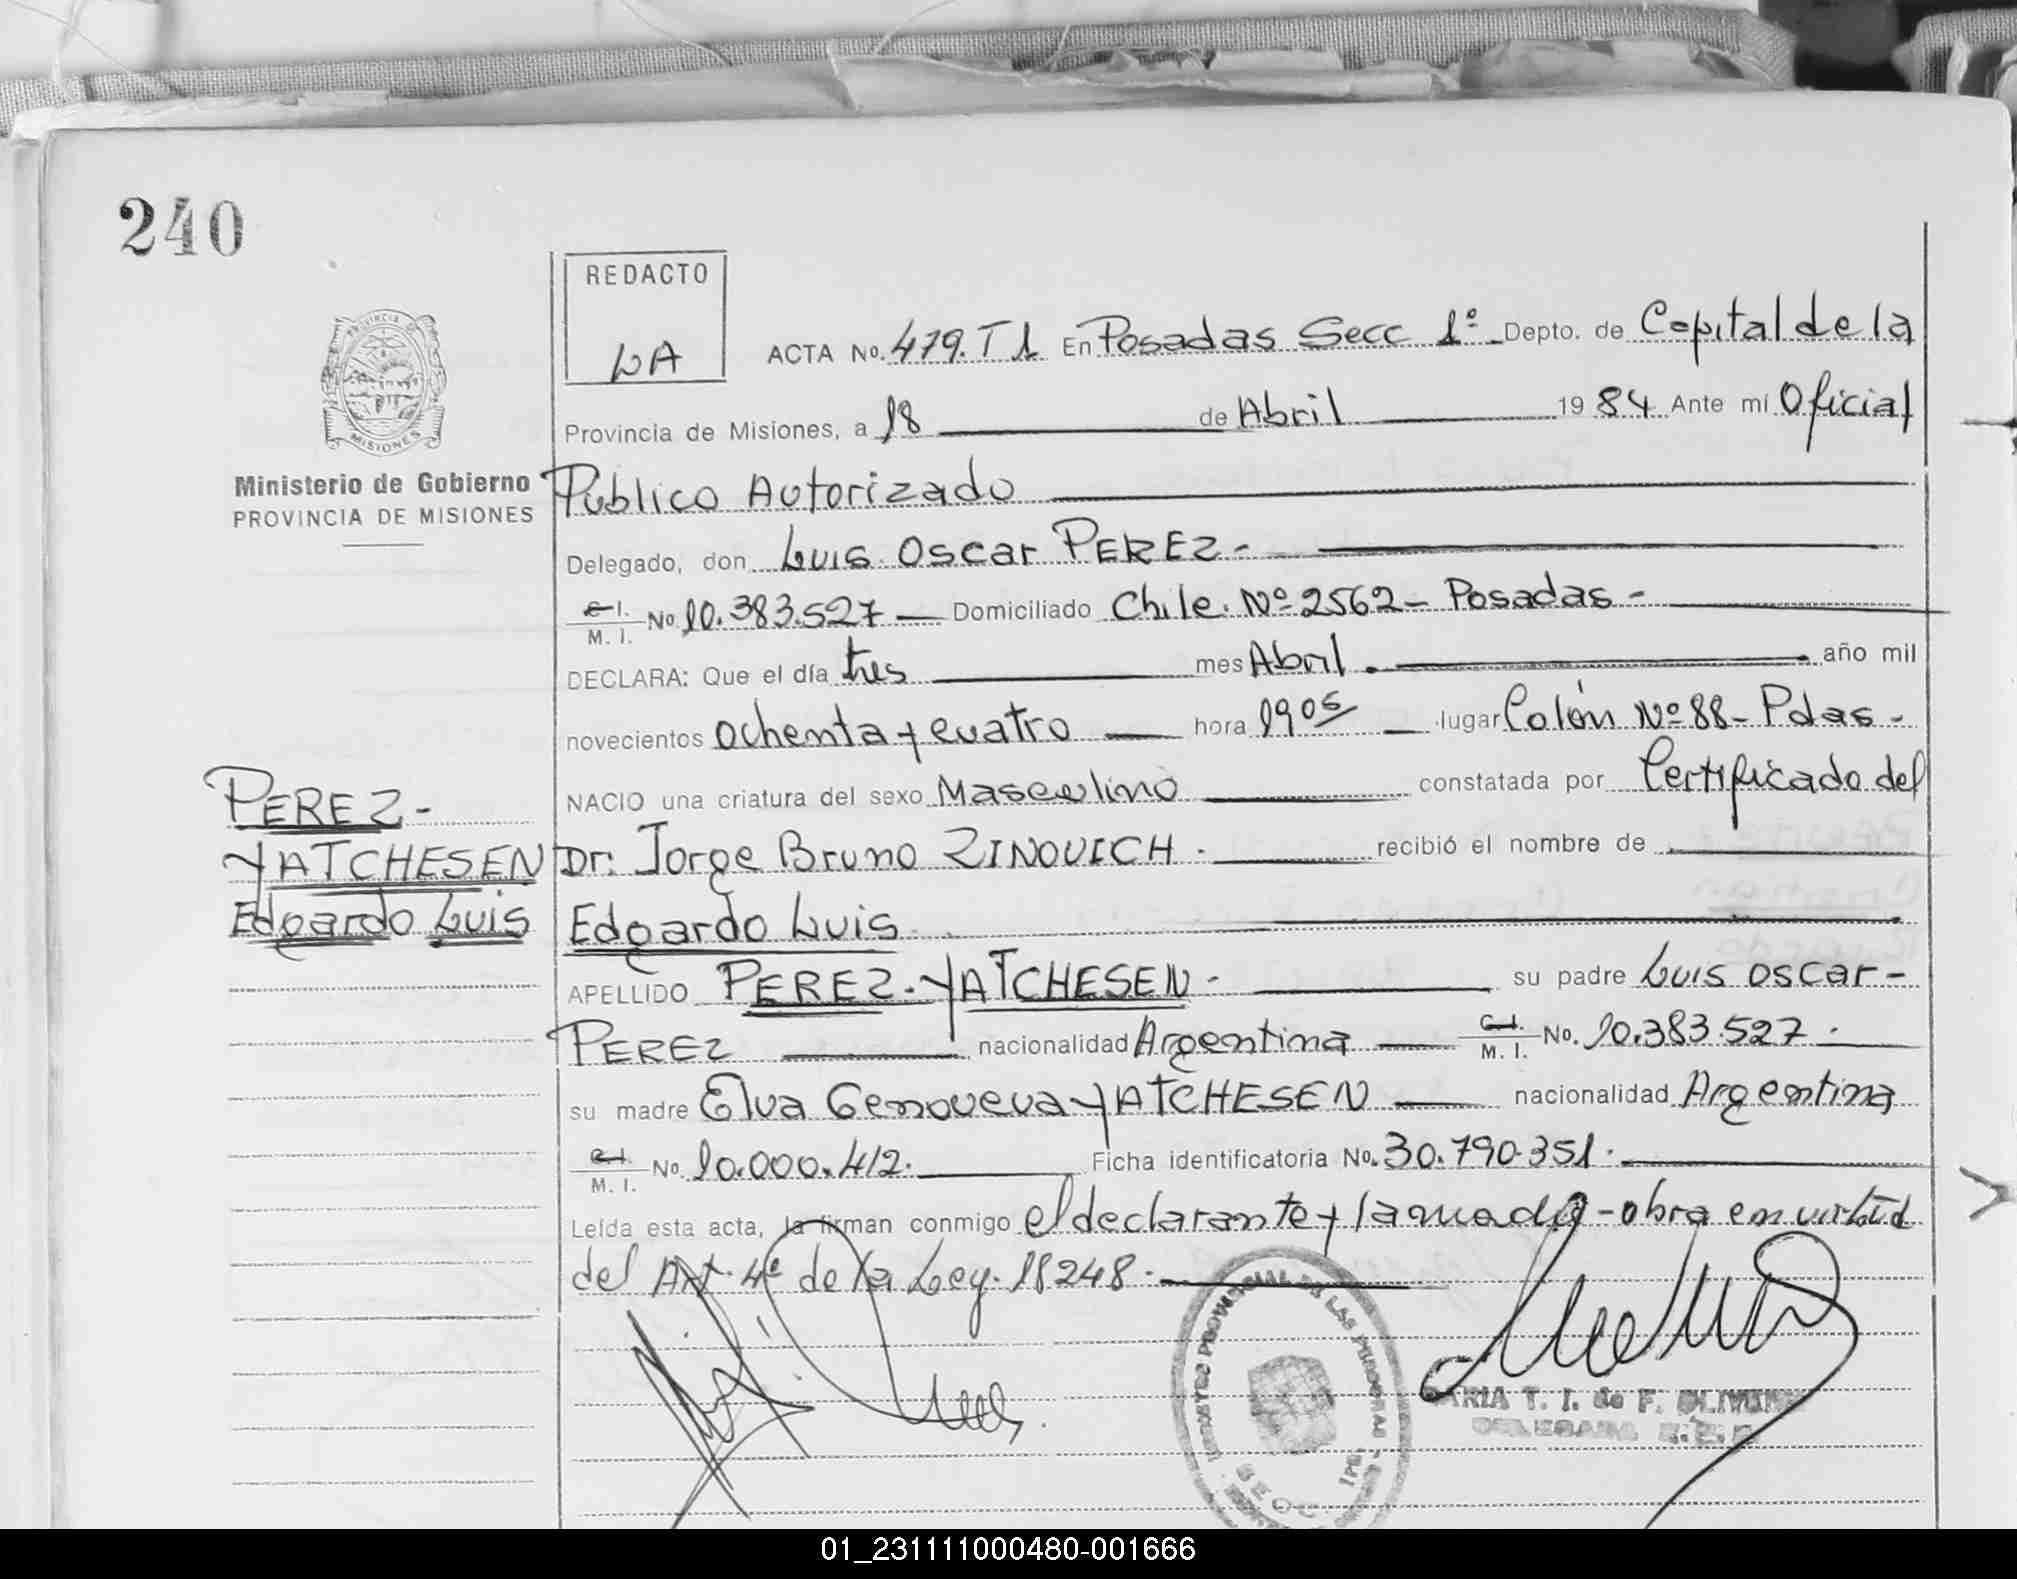 240
REDACTO
LA
ACTA No. 479. T 1 En Posadas Secc 1º - Depto. de Capital de la
Provincia de Misiones, a 18 de Abril 1984 Ante mí Oficial
PROVINCIA DE MISIONES
Ministerio de Gobierno
PROVINCIA DE MISIONES
Público Autorizado
Delegado, don Luis Oscar PEREZ -
C.I. M. I. No. 10.383.527 - Domiciliado Chile Nº 2562 - Posadas -
DECLARA: Que el día tres mes Abril. año mil
novecientos ochenta y cuatro hora 1905 lugar Colón Nº 88 - Pdas -
NACIO una criatura del sexo Masculino constatada por Certificado del
Dr. Jorge Bruno ZINOVICH. recibió el nombre de
Edgardo Luis
PEREZ -
YATCHESEN
Edgardo Luis
APELLIDO PEREZ - YATCHESEN - su padre Luis Oscar -
PEREZ nacionalidad Argentina C.I. M. I. No. 10.383.527.
su madre Elva Genoveva YATCHESEN nacionalidad Argentina
C.I. M. I. No. 10.000.412. Ficha identificatoria No. 30.790.351.
Leída esta acta, la firman conmigo el declarante y la madre - obra en virtud
del Art. 4º de la Ley. 18248.
MARIA T. I. de F.
DELEGADA
01_231111000480-001666